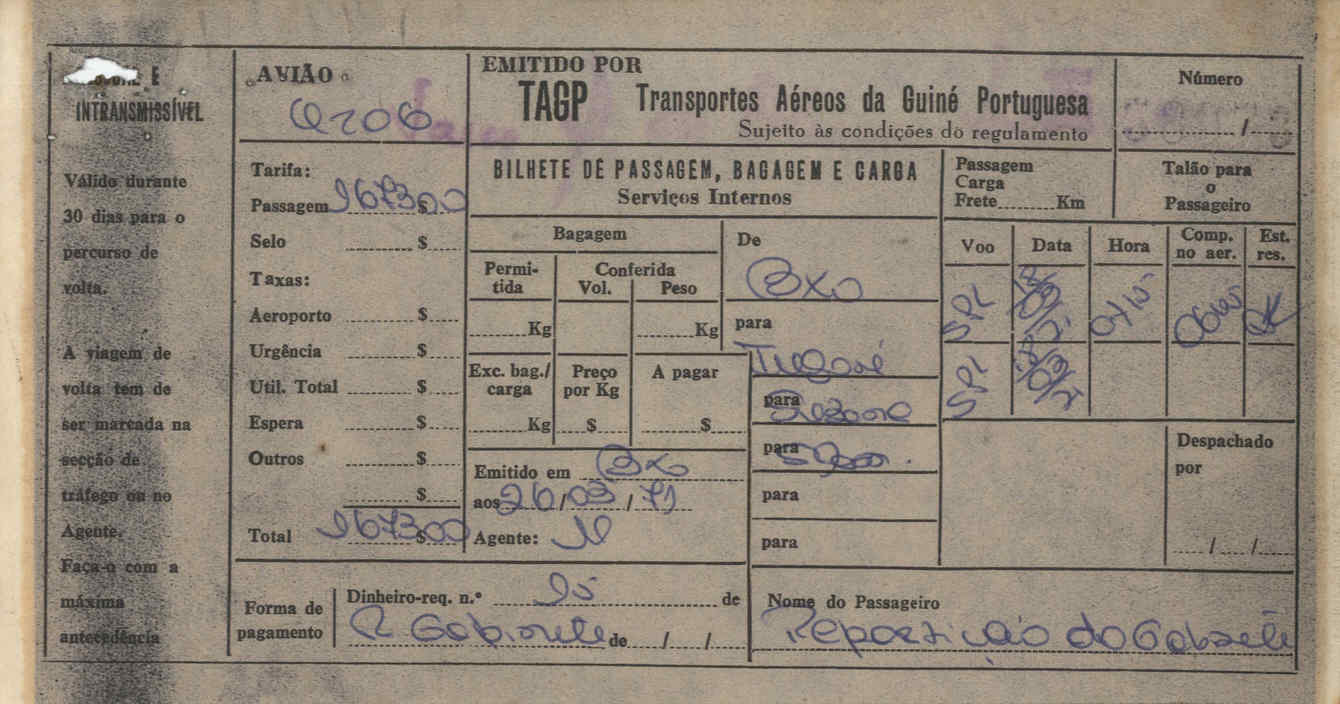 E
INTRANSMISSÍVEL
Válido durante
30 dias para o
percurso de
volta.
A viagem de
volta tem de
ser marcada na
secção de
tráfego ou no
Agente.
Faça-o com a
máxima
antecedência
AVIÃO
Tarifa:
Passagem 967300 $
Selo $
Taxas:
Aeroporto $
Urgência $
Util. Total $
Espera $
Outros $
$
Total 967300 $
EMITIDO POR
TAGP Transportes Aéreos da Guiné Portuguesa
Sujeito às condições do regulamento
Número
/
BILHETE DE PASSAGEM, BAGAGEM E CARGA
Serviços Internos
Passagem
Carga
Frete Km
Talão para
o
Passageiro
Bagagem
Permi-
tida
Conferida
Vol. Peso
Kg Kg
Exc. bag./
carga
Preço
por Kg
A pagar
Kg $ $
Emitido em Bxo
aos 26/03/71
Agente:
De
Bxo
para
para
para
para
para
Voo Data Hora Comp.
no aer. Est.
res.
SPL 0715 OK
SPL
Despachado
por
/ /
Forma de
pagamento
Dinheiro-req. n.º 95 de
R. Gabinete de / /
Nome do Passageiro
Repartição do Gabinete